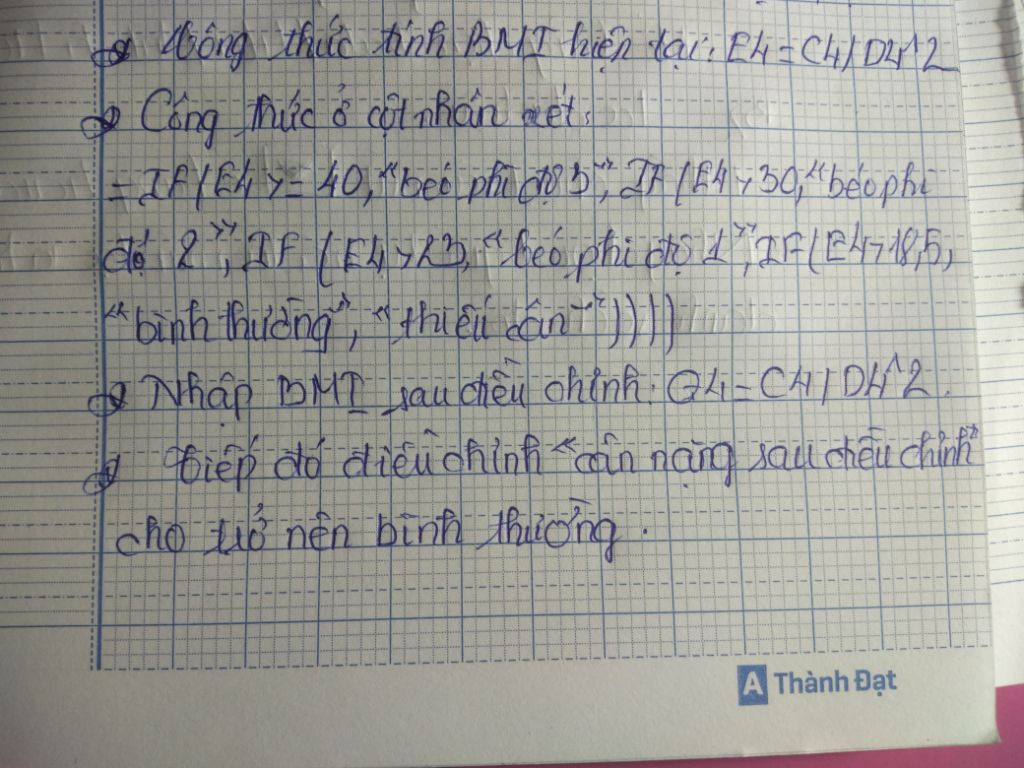 Công thức tính BMI hiện tại: E4 = C4/D4^2
Công thức ở cột nhận xét:
= IF(E4 >= 40, "béo phì độ 3", IF(E4 > 30, "béo phì
độ 2", IF(E4 > 23, "béo phì độ 1", IF(E4 > 18,5,
"bình thường", "thiếu cân"))))
Nhập BMI sau điều chỉnh: G4 = C4/D4^2.
tiếp đó điều chỉnh "cân nặng sau điều chỉnh"
cho trở nên bình thường.
A Thành Đạt